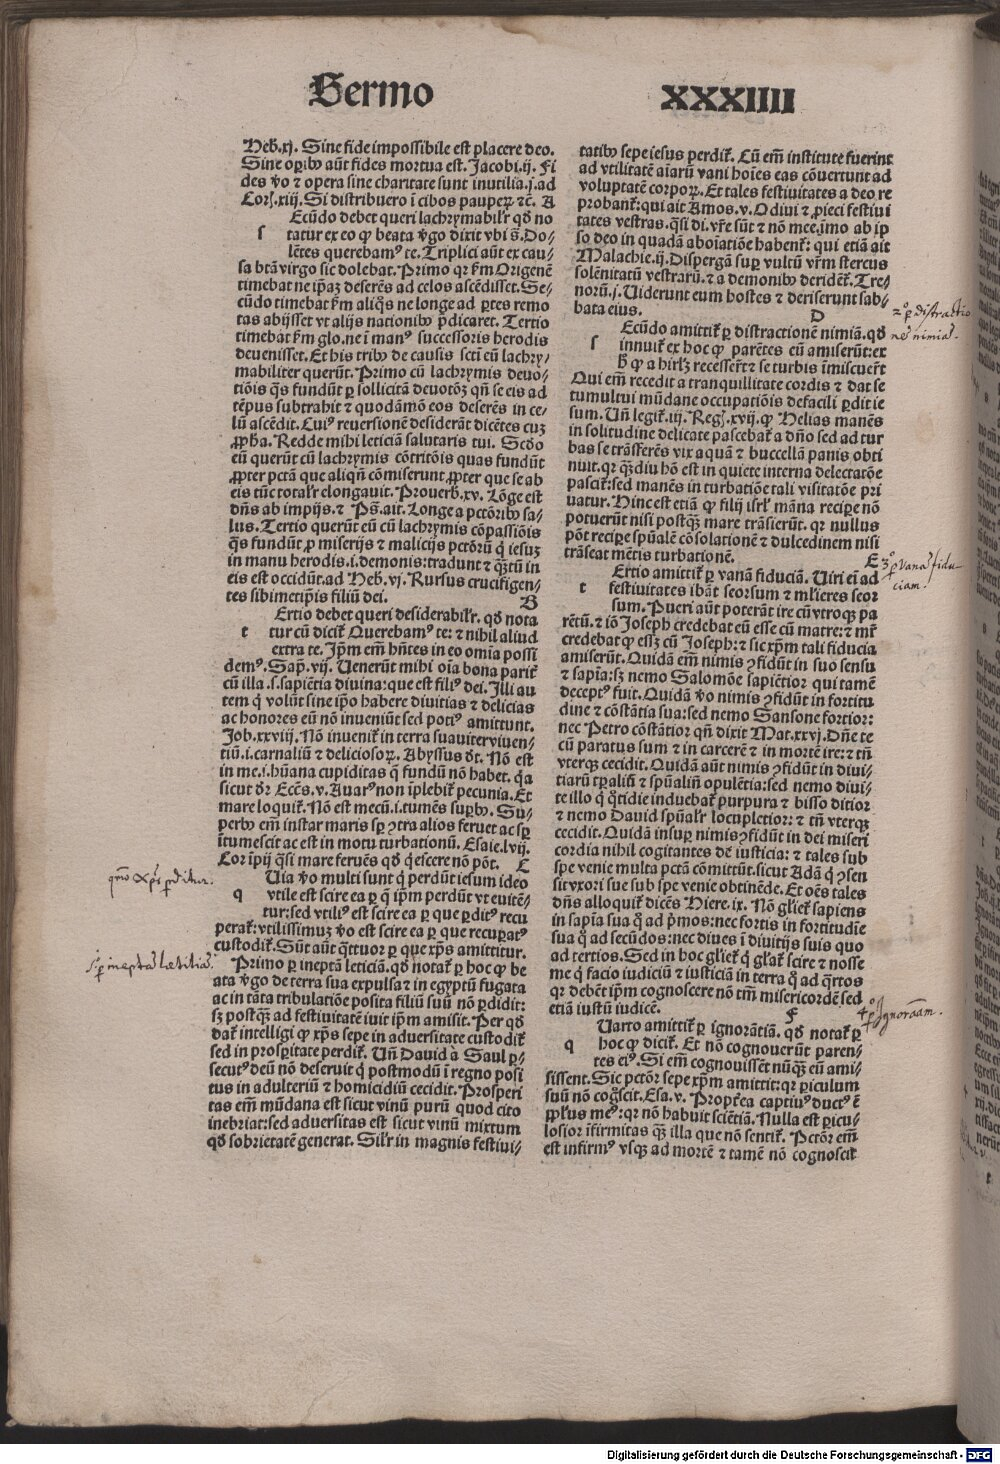 Sermo
XXXIIII
Heb̄.xj. Sine fide impossibile est placere deo.
Sine oꝑibꝰ aūt fides mortua est. Jacobi.ij. Fi
des v̄o ⁊ opera sine charitate sunt inutilia.j.ad
Coꝝ.xiij. Si distribuero ī cibos pauperꝝ ⁊c̄. A
Ecūdo debet queri lachrymabilr̄ qđ no
s tatur ex eo ꝙ beata v̄go dixit vbi s̄. Do⸗
lētes querebamꝰ te. Triplici aūt ex cau⸗
sa btā virgo sic dolebat. Primo qꝛ ẜm Origenē
timebat ne ip̄aꝫ deserēs ad celos ascēdisset. Se⸗
cūdo timebat ẜm aliq̄s ne longe ad ꝑtes remo
tas abijsset vt alijs nationibꝰ p̄dicaret. Tertio
timebat ẜm glo. ne ī manꝰ successoris herodis
deuenisset. Et his tribꝰ de causis scti eū lachry⸗
mabiliter querūt. Primo cū lachrymis deuo⸗
tiōis q̄s fundūt ꝓ sollicitā deuotōꝫ qn̄ se eis ad
tēpus subtrahit ⁊ quodāmō eos deserēs in ce⸗
lū ascēdit. Cuiꝰ reuersionē desiderāt dicētes cuꝫ
ꝓph̄a. Redde mihi leticiā salutaris tui. Scđo
eū querūt cū lachrymis cōtritōis quas fundūt
ꝓpter pctā que aliqn̄ cōmiserunt ꝓpter que se ab
eis tūc totalr̄ elongauit. Prouerb̄.xv. Lōge est
dn̄s ab impijs. ⁊ Ps̄. ait. Longe a pctōribꝰ sa⸗
lus. Tertio querūt eū cū lachrymis cōpassiōis
q̄s fundūt ꝓ miserijs ⁊ malicijs pctōrū q̄ iesuꝫ
in manu herodis .i. demonis: tradunt ⁊ q̄ꝫtū in
eis est occidūt. ad Heb̄.vj. Rursus crucifigen⸗
tes sibimetip̄is filiū dei. B
Ertio debet queri desiderabilr̄. qđ nota
t tur cū dicit̄ Querebamꝰ te: ⁊ nihil aliud
extra te. Ip̄m em̄ hn̄tes in eo omīa possi
demꝰ. Sap̄.vij. Venerūt mihi oīa bona parit̄
cū illa .s. sapiētia diuina: que est filiꝰ dei. Illi au
tem q̄ volūt sine ip̄o habere diuitias ⁊ delicias
ac honores eū nō inueniūt sed potiꝰ amittunt.
Job.xxviij. Nō inuenit̄ in terra suauiterviuen⸗
tiū .i. carnaliū ⁊ deliciosoꝝ. Abyssus dt̄. Nō est
in me .i. hūana cupiditas q̄ fundū nō habet. q̄a
sicut dr̄ Ecc̄s.v. Auarꝰ non īplebit̄ pecunia. Et
mare loquit̄. Nō est mecū .i. tumēs suꝑbꝰ. Su⸗
perbꝰ em̄ instar maris sꝑ ꝯtra alios feruet ac sꝑ
ītumescit ac est in motu turbationū. Esaie.lvij.
Cor īpij q̄si mare feruēs qđ q̄escere nō pōt. C
Uia v̄o multi sunt q̄ perdūt iesum ideo
q vtile est scire ea ꝑ q̄ ip̄m perdūt vt euitē⸗
tur: sed vtiliꝰ est scire ea ꝑ que ꝑditꝰ recu
perat̄: vtilissimuꝫ v̄o est scire ea ꝑ que recuꝑatꝰ
custodit̄. Sūt aūt q̄ttuor ꝑ que xp̄s amittitur.
Primo ꝑ ineptā leticiā. qđ notat̄ ꝑ hoc ꝙ be
ata v̄go de terra sua expulsa ⁊ in egyptū fugata
ac in tāta tribulatiōe posita filiū suū nō ꝑdidit:
sꝫ postq̄ꝫ ad festiuitatē iuit ip̄m amisit. Per qđ
dat̄ intelligi ꝙ xp̄s sepe in aduersitate custodit̄
sed in prosꝑitate perdit̄. Vn̄ Dauid à Saul ꝑ⸗
secutꝰ deū nō deseruit q̄ postmodū ī regno posi
tus in adulteriū ⁊ homicidiū cecidit. Prosperi
tas em̄ mūdana est sicut vinū purū quod cito
inebriat: sed aduersitas est sicut vinū mixtum
qđ sobrietatē generat. Silr̄ in magnis festiui⸗
tatibꝰ sepe iesus perdit̄. Cū em̄ institute fuerint
ad vtilitatē aīarū vani hoīes eas cōuertunt ad
voluptatē corpoꝝ. Et tales festiuitates a deo re
probant̄: qui ait Amos.v. Odiui ⁊ ꝓieci festiui
tates vestras. q̄si di. vr̄e sūt ⁊ nō mee. īmo ab ip̄
so deo in quadā aboīatiōe habent̄: qui etiā ait
Malachie.ij. Dispergā suꝑ vultū vr̄m stercus
solēnitatū vestrarū. ⁊ a demonibꝰ deridēt̄. Tre⸗
norū.j. Viderunt eum hostes ⁊ deriserunt sab⸗
bata eius. D
Ecūdo amittit̄ ꝑ distractionē nimiā. qđ
s innuit̄ ex hoc ꝙ parētes eū amiserūt: ex
ꝙ a hirlꝫ recesserūt ⁊ se turbis īmiscuerūt
Qui em̄ recedit a tranquillitate cordis ⁊ dat se
tumultui mūdane occupatiōis defacili ꝑdit ie
sum. Vn̄ legit̄.iij. Reḡ.xvij. ꝙ Helias manēs
in solitudine delicate pascebat̄ a dn̄o sed ad tur
bas se trāsferēs vix aquā ⁊ buccellā panis obti
nuit. qꝛ q̄ꝫdiu hō est in quiete interna delectatōe
pascit̄: sed manēs in turbatiōe tali visitatōe pri
uatur. Hinc est etiā ꝙ filij isrl̄ māna reciꝑe nō
potuerūt nisi postq̄ꝫ mare trāsierūt. qꝛ nullus
pōt reciꝑe spūalē cōsolationē ⁊ dulcedinem nisi
trāseat mētis turbationē. E
Ertio amittit̄ ꝑ vanā fiduciā. Viri em̄ ad
t festiuitates ibāt seorsum ⁊ ml̄ieres seor
sum. Pueri aūt poterāt ire cū vtroqꝫ pa
rētū. ⁊ iō Joseph credebat eū esse cū matre: ⁊ mr̄
credebat ꝙ essꝫ cū Joseph: ⁊ sic xp̄m tali fiducia
amiserūt. Quidā em̄ nimis ꝯfidūt in suo sensu
⁊ sapīa: sꝫ nemo Salomōe sapiētior qui tamē
deceptꝰ fuit. Quidā v̄o nimis ꝯfidūt in fortitu
dine ⁊ cōstātia sua: sed nemo Sansone fortior:
nec Petro cōstātior qn̄ dixit Mat.xxvj. Dn̄e te
cū paratus sum ⁊ in carcerē ⁊ in mortē ire: ⁊ tn̄
vterqꝫ cecidit. Quidā aūt nimis ꝯfidūt in diui⸗
tiarū tꝑaliū ⁊ spūaliū opulētia: sed nemo diui⸗
te illo q̄ q̄tidie induebat̄ purpura ⁊ bisso ditior
⁊ nemo Dauid spūalr̄ locupletior: ⁊ tn̄ vterqꝫ
cecidit. Quidā insuꝑ nimis ꝯfidūt in dei miseri
cordia nihil cogitantes dē iusticia: ⁊ tales sub
spe venie multa pctā cōmittūt. sicut Adā q̄ ꝯsen
sit vxori sue sub spe venie obtinēde. Et oēs tales
dn̄s alloquit̄ dicēs Hiere.ix. Nō gl̄iet̄ sapiens
in sapīa sua q̄ ad p̄mos: nec fortis in fortitudīe
sua q̄ ad secūdos: nec diues ī diuitijs suis quo
ad tertios. Sed in hoc gl̄iet̄ q̄ gl̄iat̄ scire ⁊ nosse
me q̄ facio iudiciū ⁊ iusticiā in terra q̄ ad q̄rtos
qꝛ debēt ip̄m cognoscere nō tm̄ misericordē sed
etiā iustū iudicē. F
Uarto amittit̄ ꝑ ignorātiā. qđ notat̄ ꝑ
q hoc ꝙ dicit̄. Et nō cognouerūt paren⸗
tes eiꝰ. Si em̄ cognouissēt nūq̄ꝫ eū ami⸗
sissent. Sic pctōr sepe xp̄m amittit: qꝛ ꝑiculum
suū nō coḡscit. Esa.v. Propt̄ea captiuꝰ ductꝰ ē
ppl̄us meꝰ: qꝛ nō habuit sciētiā. Nulla est ꝑicu⸗
losior īfirmitas q̄ꝫ illa que nō sentit̄. Pctōr em̄
est infirmꝰ vsqꝫ ad mortē ⁊ tamē nō cognoscit
quō xp̄s ꝑditur.
ꝑ ineptā letitiā.
2º ꝑ distractio
nē nimiā.
3º ꝑ vanā fidu⸗
ciam.
4º ꝑ Ignorātiam.
Digitalisierung gefördert durch die Deutsche Forschungsgemeinschaft - DFG